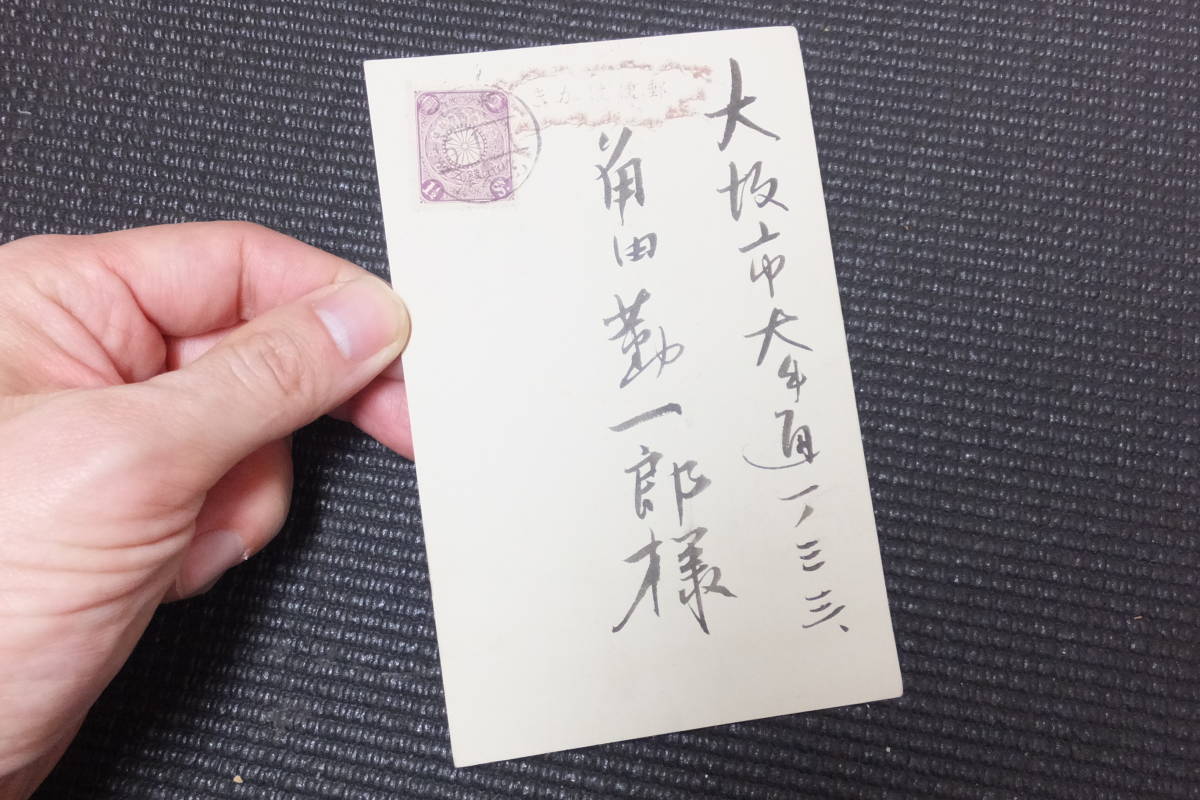 郵便はかき
大坂市大手通一ノ三三、
角田勤一郎様